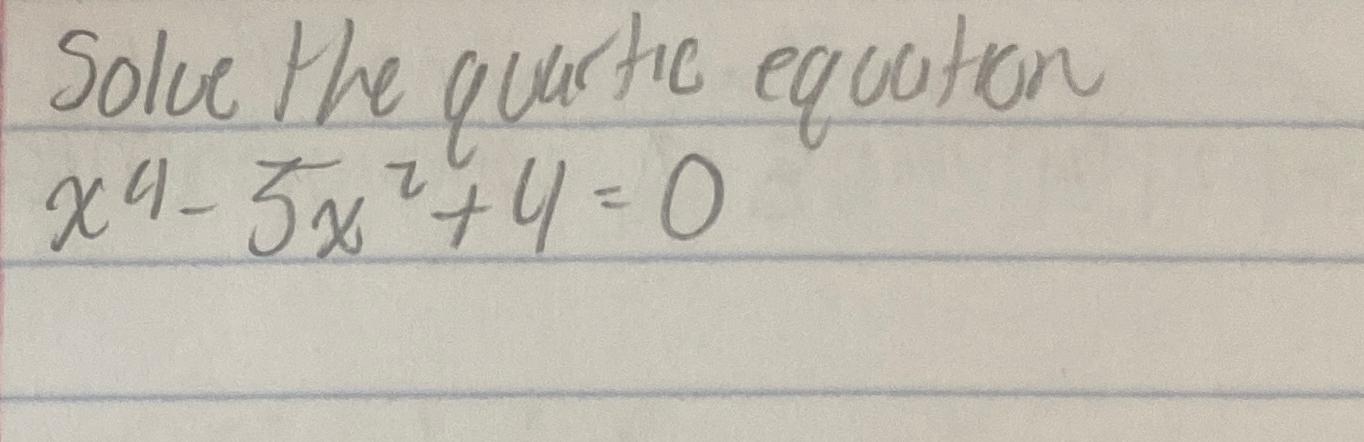 Solve the quartic equation
x⁴ - 5x² + 4 = 0